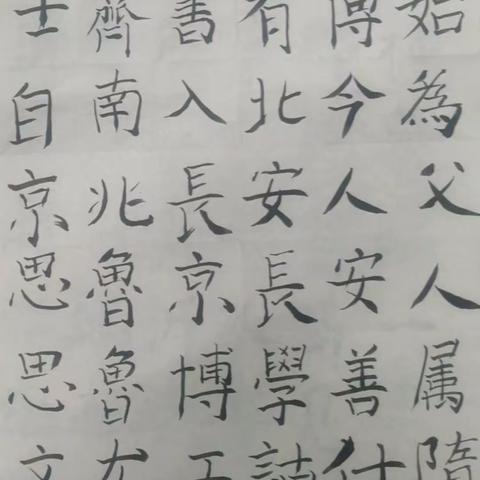 士齊書有傳始
自南入北今為
京兆長安人父
思魯京長安人
思魯博學善属
文尤工詁仕隋